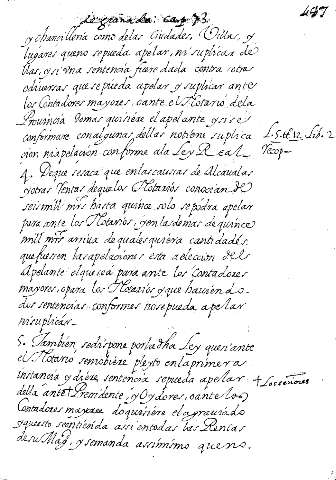 de granada. Cap. 73
447
y chancilleria como de las Ciudades, Villas, y
lugares que no sepueda apelar, ni suplicar de
llas, y si una sentencia fuere dada contra otras
o diversas que sepueda apelar y suplicar ante
los Contadores mayores, o ante el Notario dela
Provincia do mas quisiere el apelante y si se
confirmare con alguna, dellas no tiene suplica
cion, ni apelacion conforme ala Ley Real
4. De que se saca que en las causas de Alcavalas
y otras Rentas de que los Notarios conocian de
seis mill mrs hasta quince solo se podra apelar
para ante los Notarios, y en las demas de quince
mill mrs arriva de qualesquiera cantidades,
que fuesen las apelaciones esta a eleccion del
Apelante el que sea para ante los Contadores
mayores, o para los Notarios y que haciendo
dos sentencias conformes no se pueda apelar
ni suplicar
5. Tambien se dispone por la dha Ley que si ante
el Notario se moviere pleyto en la primera
instancia y diere sentencia se pueda apelar
della ante + Presidente, y Oydores, o ante los
Contadores mayores do quisiere el agraviado
y questo se entienda assi en todas las Rentas
de su Mag. y se manda assimismo que no.
Lib. 2
Recop
+ Los señores